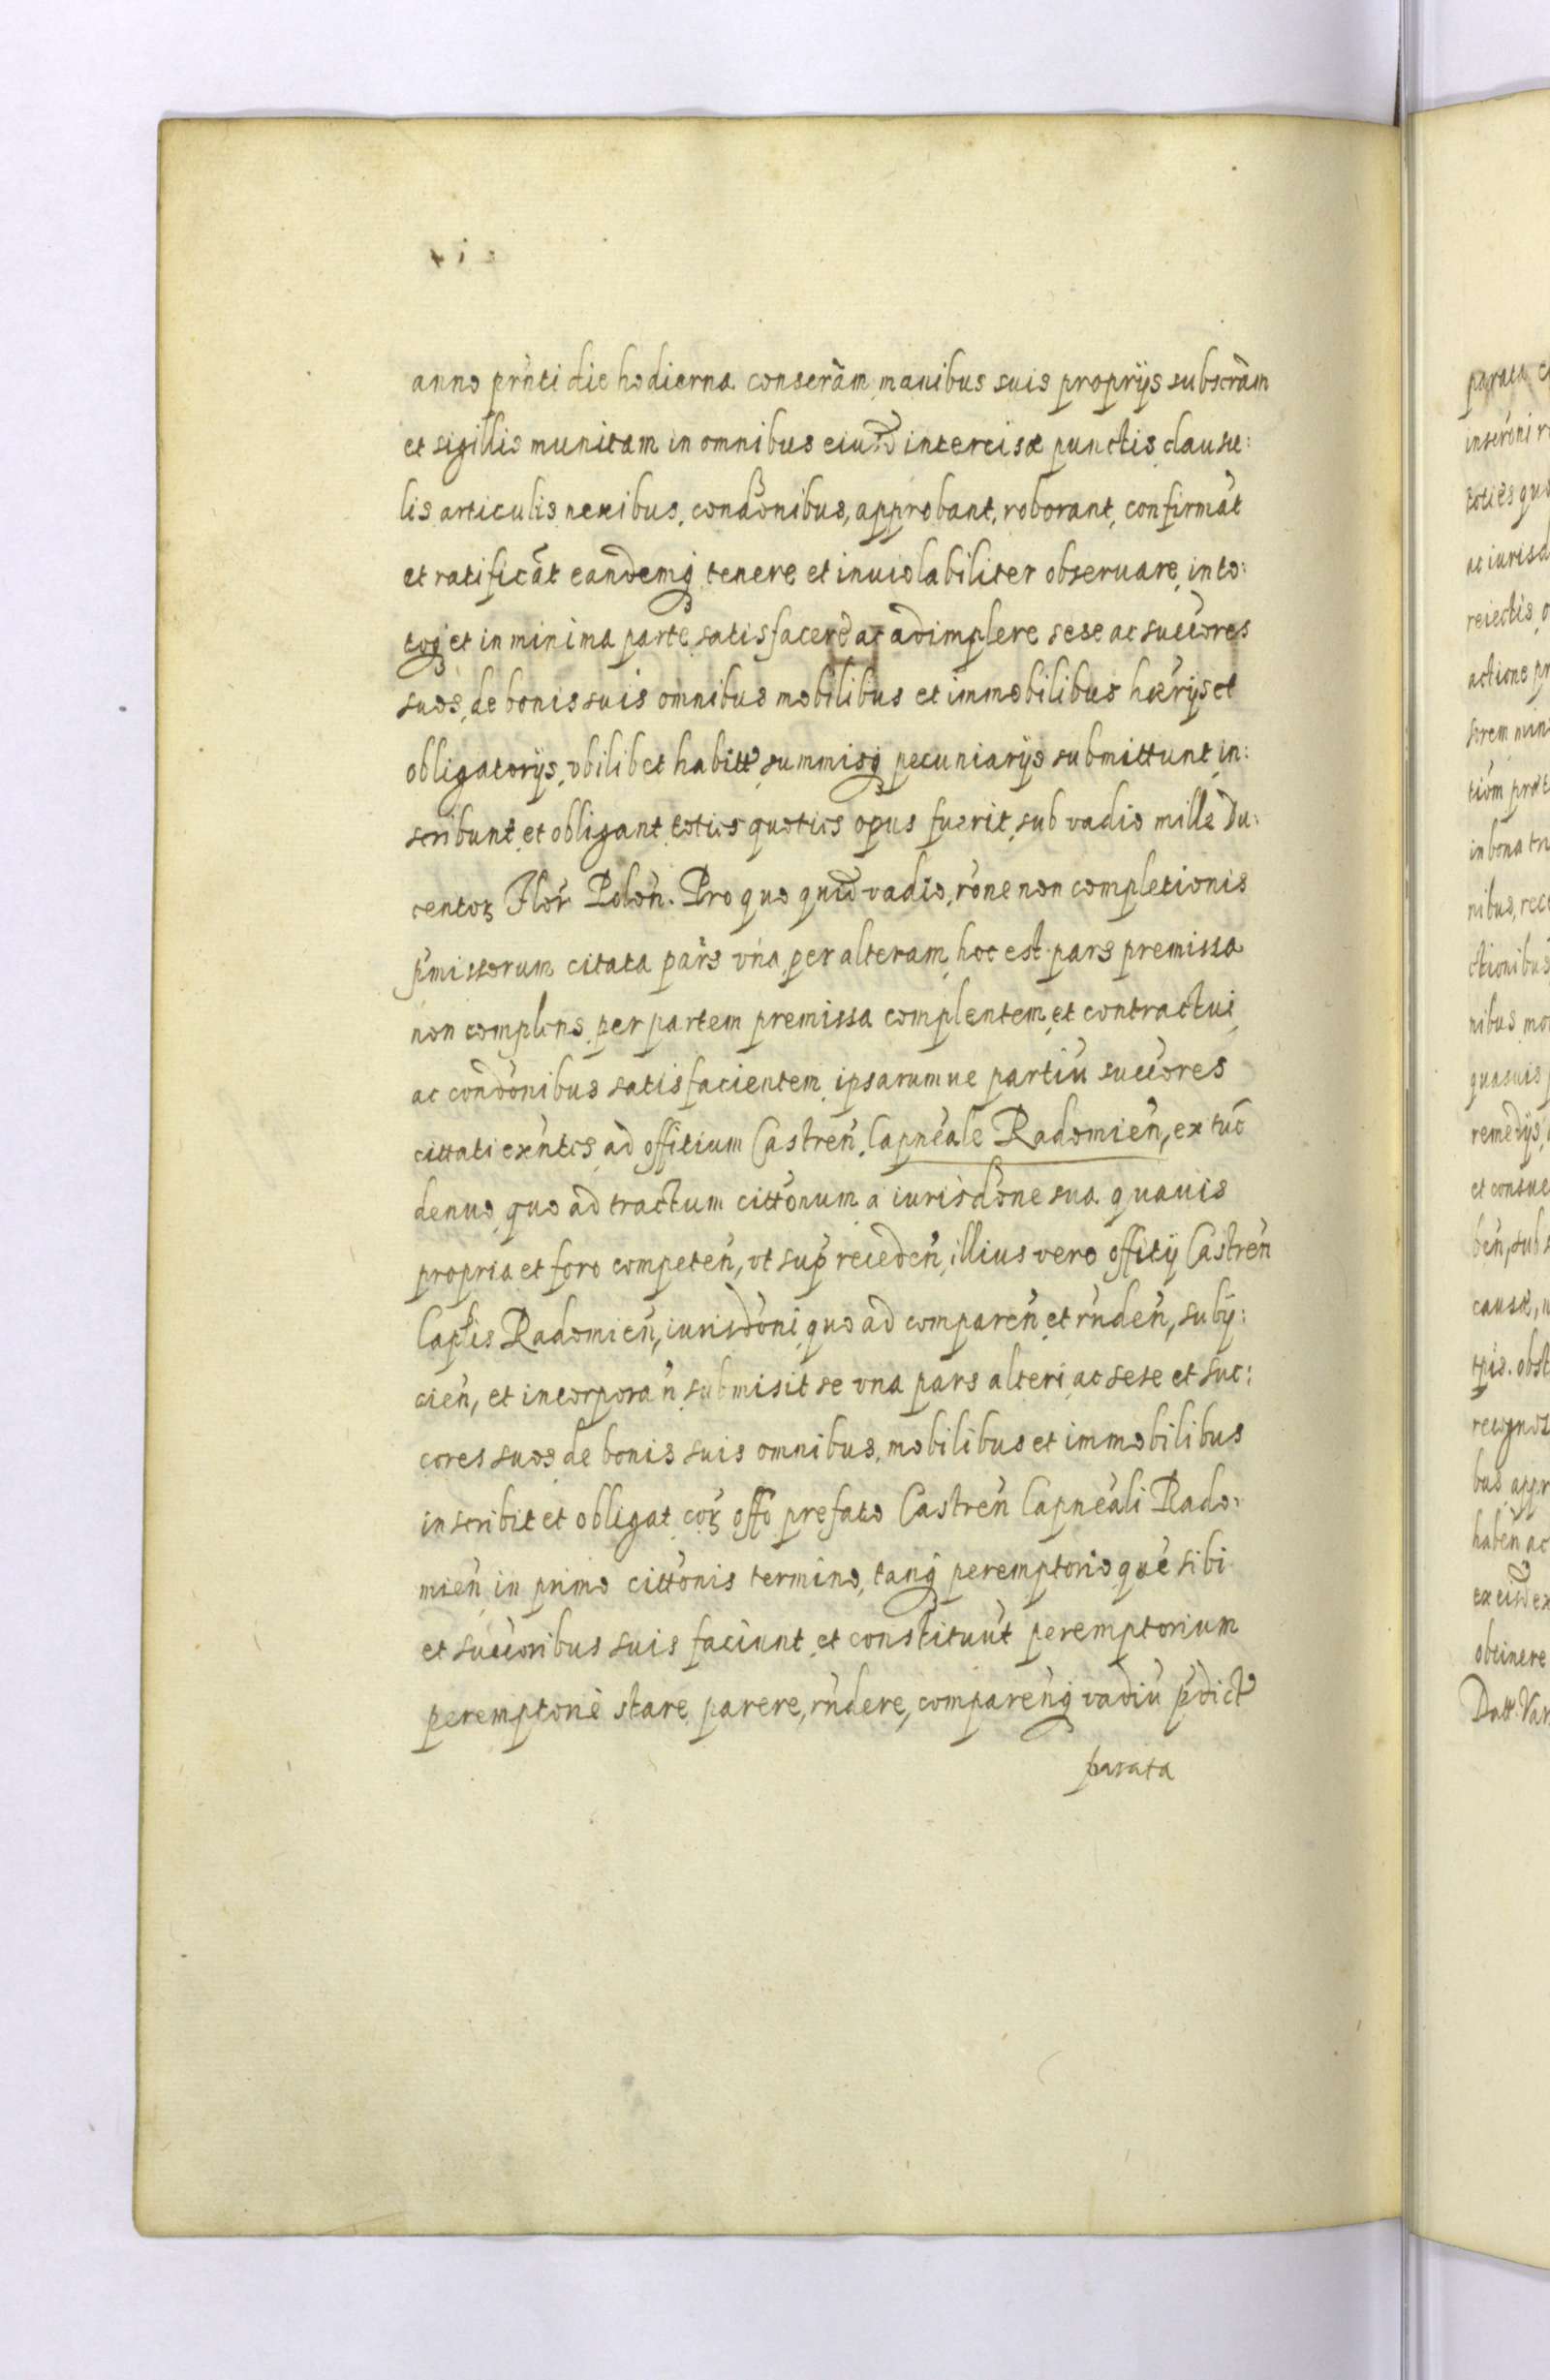 anno prn̄ti die hodierna conserām manibus suis proprijs subscrām
et sigillis munitam in omnibus eiusd intercisæ punctis clausu:
lis articulis nexibus, condōnibus, approbant, roborant, confirmāt
et ratificāt eandemq tenere et inuiolabiliter obseruare, in to:
toq et in minima parte satisfacere ac adimplere sese ac succōres
suos, de bonis suis omnibus mobilibus et immobilibus hærijs et
obligatorijs, vbilibet habitt summisq pecuniarijs submittunt, in:
scribunt, et obligant, toties quoties opus fuerit, sub vadio mille Du:
centoꝝ Flor̄ Polon̄. Pro quo quid vadio, rōne non completionis
p̄missorum citata pars vna per alteram, hoc est pars premissa
non complens, per partem premissa complentem, et contractui,
ac condōnibus satisfacientem, ipsarumue partiū succōres
cittati exn̄tes, ad offitium Castren̄, Capnēale Radomien̄, ex tūc
denuo, quo ad tractum cittōnum a iurisdōne sua quauis
propria et foro competen̄, vt sup̄ recedēn, illius vero offitij Castren̄
Capl̄is Radomien̄, iurisdōni, quo ad comparen̄, et rn̄den̄, subij:
cien̄, et incorporan̄ submisit se vna pars alteri, ac sese et suc:
cores suos, de bonis suis omnibus, mobilibus et immobilibus
inscribit et obligat coꝝ offo prefato Castren̄ Capnēali Rado:
mien̄, in primo cittōnis termino, tanq peremptorio, quē sibi
et succōribus suis faciunt, et constituūt peremptorium
peremptoriē stare, parere, rn̄dere, comparen̄q vadiū p̄dict
parata